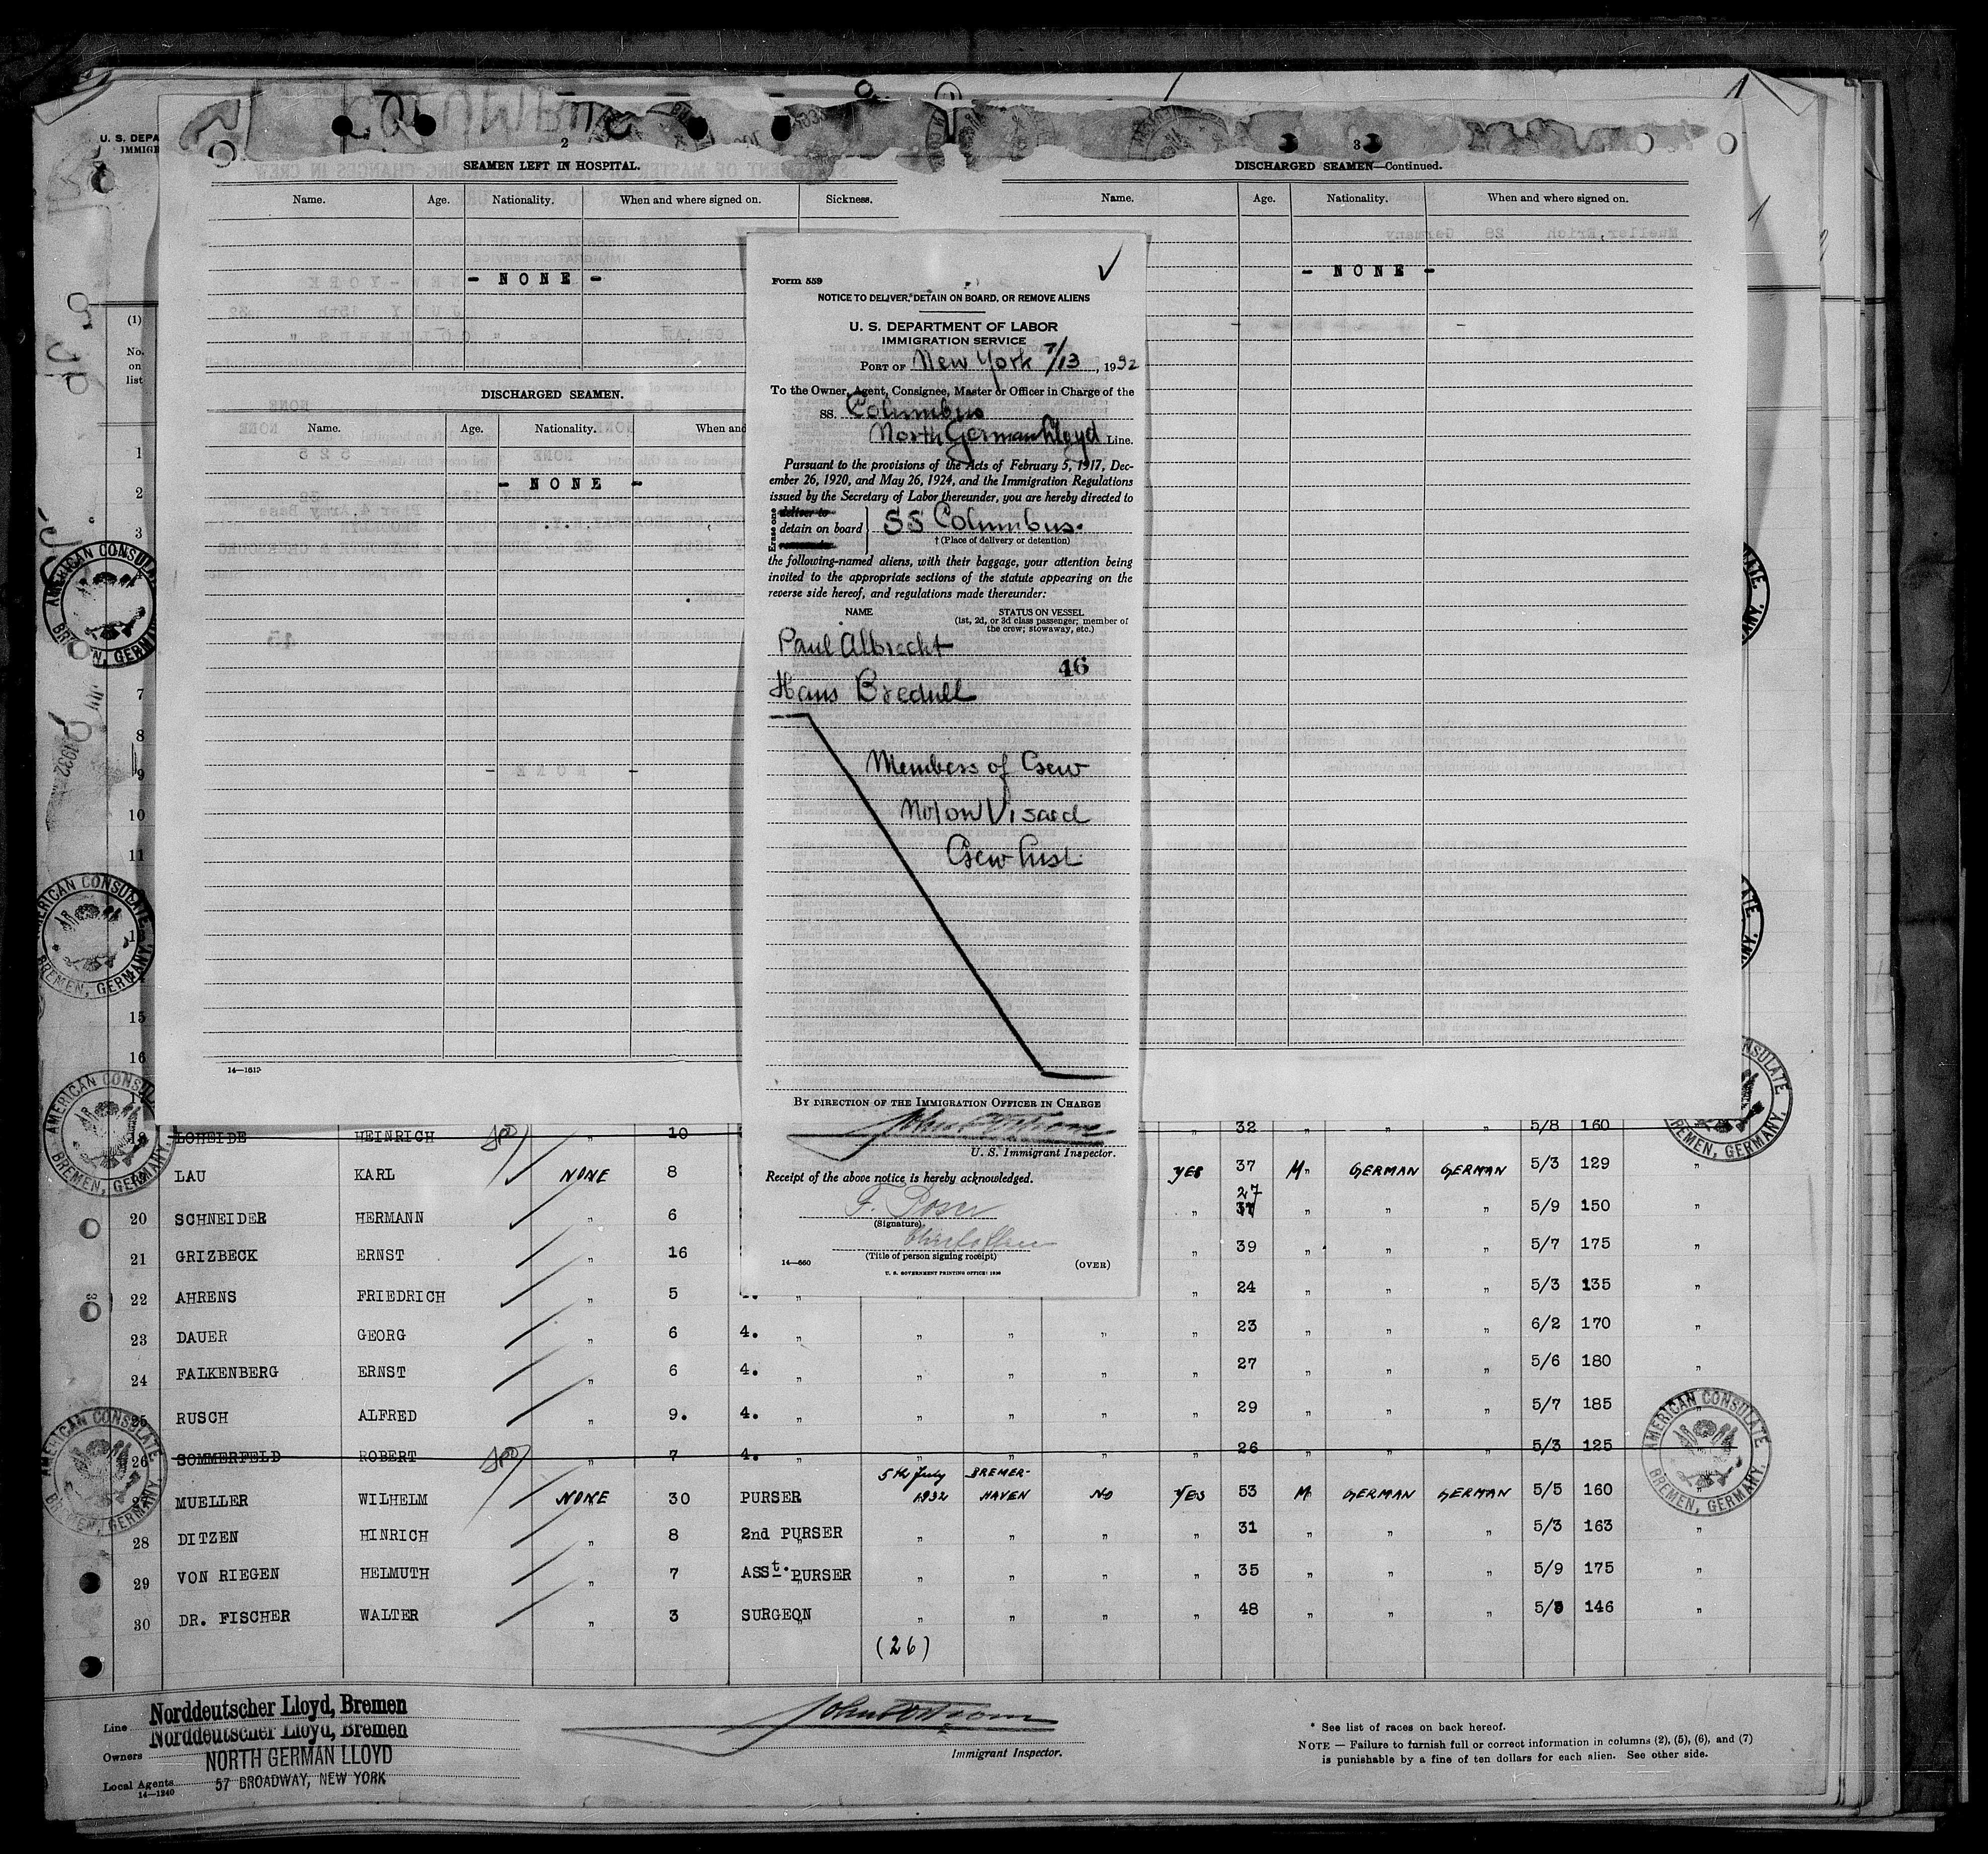 U. S. DEPA
IMMIGR
COLUMBUS
2
SEAMEN LEFT IN HOSPITAL.
Name. Age. Nationality. When and where signed on. Sickness.
- NONE -
DISCHARGED SEAMEN.
Name. Age. Nationality. When and
- NONE -
14—1613
3
DISCHARGED SEAMEN—Continued.
Name. Age. Nationality. When and where signed on.
- NONE -
Form 559
NOTICE TO DELIVER, DETAIN ON BOARD, OR REMOVE ALIENS
U. S. DEPARTMENT OF LABOR
IMMIGRATION SERVICE
PORT OF New York 7/13, 1932
To the Owner, Agent, Consignee, Master or Officer in Charge of the
SS. Columbus
North German Lloyd Line.
Pursuant to the provisions of the Acts of February 5, 1917, Dec-
ember 26, 1920, and May 26, 1924, and the Immigration Regulations
issued by the Secretary of Labor thereunder, you are hereby directed to
Erase one
deliver to
detain on board } SS Columbus.
† (Place of delivery or detention)
the following-named aliens, with their baggage, your attention being
invited to the appropriate sections of the statute appearing on the
reverse side hereof, and regulations made thereunder:
NAME STATUS ON VESSEL
(1st, 2d, or 3d class passenger; member of
the crew; stowaway, etc.)
Paul Albrecht
46
Hans Bredull
Members of Crew
Not on Visaed
Crew List.
BY DIRECTION OF THE IMMIGRATION OFFICER IN CHARGE
U. S. Immigrant Inspector.
Receipt of the above notice is hereby acknowledged.
F. Poser
(Signature)
(Title of person signing receipt)
14—560 (OVER)
U. S. GOVERNMENT PRINTING OFFICE: 1930
(1)
No.
on
list
1
2
3
7
8
9
10
11
15
16
18 LOHEIDE HEINRICH " 10 " 32 " " " 5/8 160
19 LAU KARL NONE 8 YES 37 M " GERMAN GERMAN 5/3 129 "
20 SCHNEIDER HERMANN " 6 " 27 37 " " " 5/9 150 "
21 GRIZBECK ERNST " 16 " 39 " " " 5/7 175 "
22 AHRENS FRIEDRICH " 5 " " 24 " " " 5/3 135 "
23 DAUER GEORG " 6 4. " " " " " 23 " " " 6/2 170 "
24 FALKENBERG ERNST " 6 4. " " " " " 27 " " " 5/6 180 "
25 RUSCH ALFRED " 9. 4. " " " " " 29 " " " 5/7 185 "
26 SOMMERFELD ROBERT " 7 4. " " " " " 26 " " " 5/3 125
27 MUELLER WILHELM NONE 30 PURSER 5th July 1932 BREMER-HAVEN NO YES 53 M GERMAN GERMAN 5/5 160
28 DITZEN HINRICH " 8 2nd PURSER " " " " 31 " " " 5/3 163 "
29 VON RIEGEN HELMUTH " 7 ASSt. PURSER " " " " 35 " " " 5/9 175 "
30 DR. FISCHER WALTER " 3 SURGEON " " " " 48 " " " 5/9 146 "
(26)
Line Norddeutscher Lloyd, Bremen
Owners Norddeutscher Lloyd, Bremen
NORTH GERMAN LLOYD
Local Agents 57 BROADWAY, NEW YORK
14—1240
Immigrant Inspector.
* See list of races on back hereof.
NOTE — Failure to furnish full or correct information in columns (2), (5), (6), and (7)
is punishable by a fine of ten dollars for each alien. See other side.
AMERICAN CONSULATE
BREMEN, GERMANY.
AMERICAN CONSULATE
BREMEN, GERMANY.
AMERICAN CONSULATE
BREMEN, GERMANY.
AMERICAN CONSULATE
BREMEN, GERMANY.
AMERICAN CONSULATE
BREMEN, GERMANY.